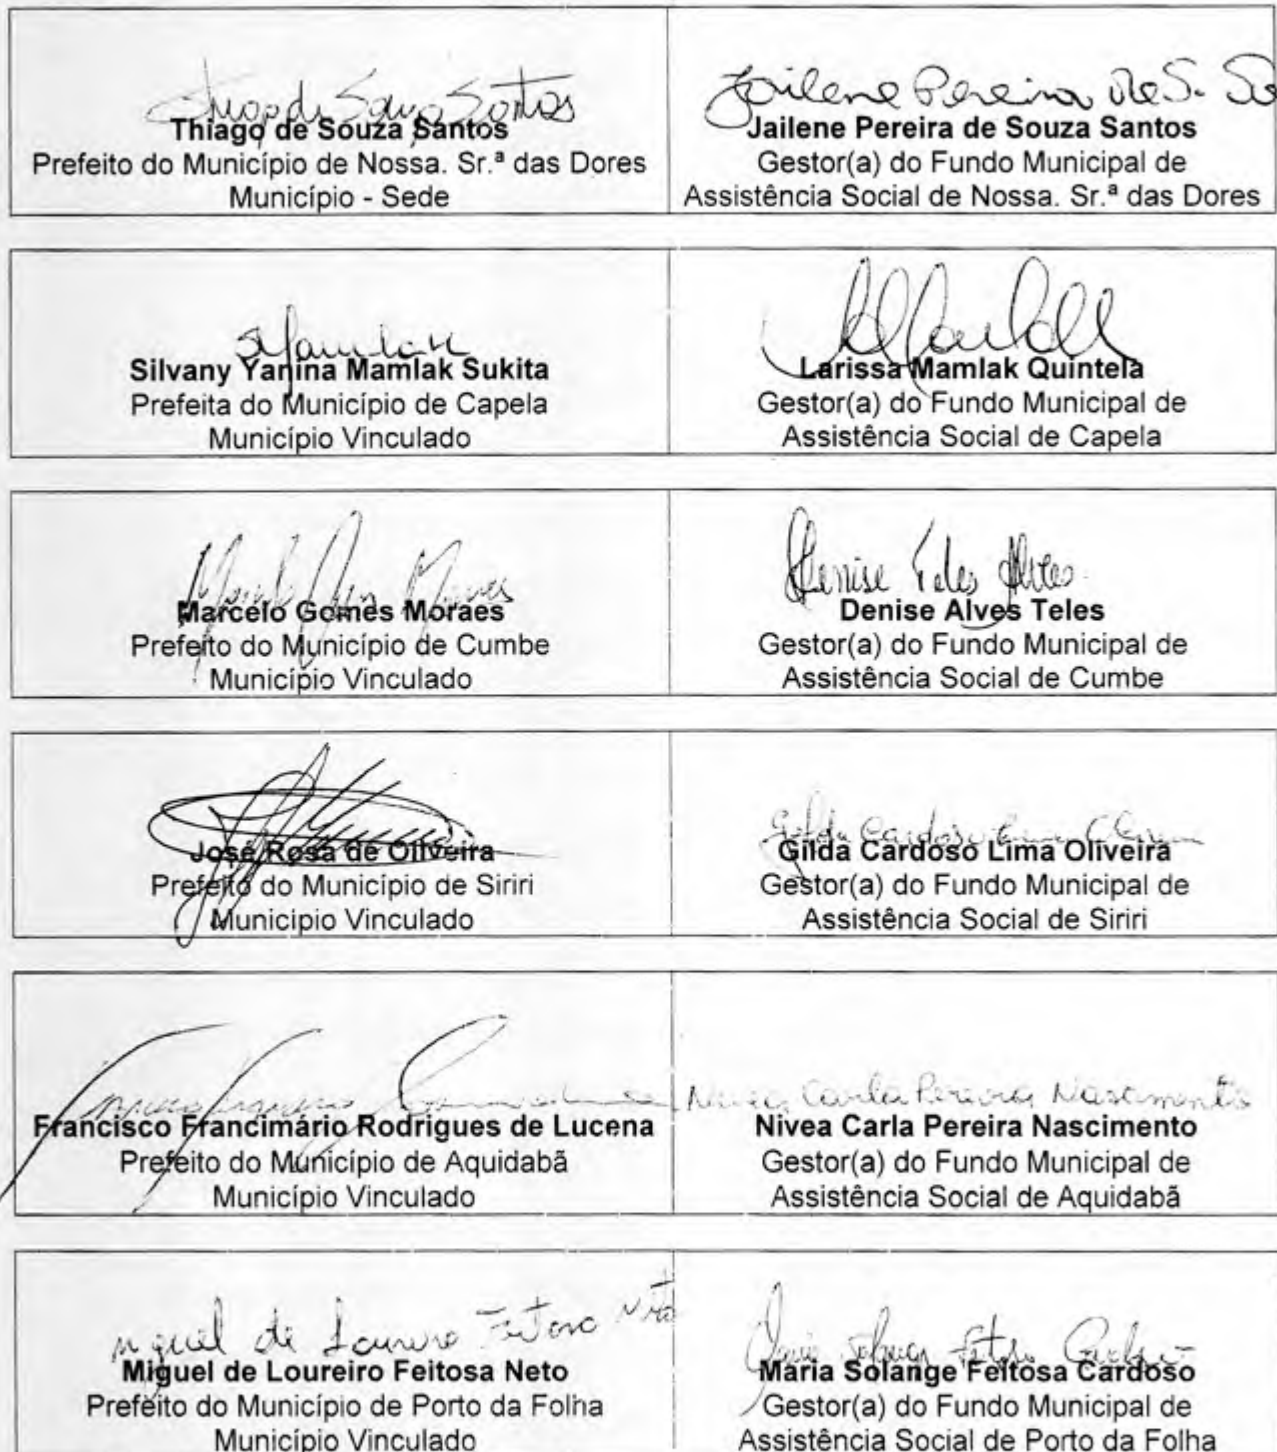 Thiago de Souza Santos
Thiago de Souza Santos
Prefeito do Município de Nossa. Sr.ª das Dores
Município - Sede
Jailene Pereira de S. Sa
Jailene Pereira de Souza Santos
Gestor(a) do Fundo Municipal de
Assistência Social de Nossa. Sr.ª das Dores
Silvany Yanina Mamlak Sukita
Prefeita do Município de Capela
Município Vinculado
Larissa Mamlak Quintela
Gestor(a) do Fundo Municipal de
Assistência Social de Capela
Marcelo Gomes Moraes
Prefeito do Município de Cumbe
Município Vinculado
Denise Teles Alves
Denise Alves Teles
Gestor(a) do Fundo Municipal de
Assistência Social de Cumbe
José Rosa de Oliveira
Prefeito do Município de Siriri
Município Vinculado
Gilda Cardoso Lima Oliveira
Gestor(a) do Fundo Municipal de
Assistência Social de Siriri
Francisco Francimário Rodrigues de Lucena
Prefeito do Município de Aquidabã
Município Vinculado
Nivea Carla Pereira Nascimento
Nivea Carla Pereira Nascimento
Gestor(a) do Fundo Municipal de
Assistência Social de Aquidabã
Miguel de Loureiro Feitosa Neto
Miguel de Loureiro Feitosa Neto
Prefeito do Município de Porto da Folha
Município Vinculado
Maria Solange Feitosa Cardoso
Maria Solange Feitosa Cardoso
Gestor(a) do Fundo Municipal de
Assistência Social de Porto da Folha